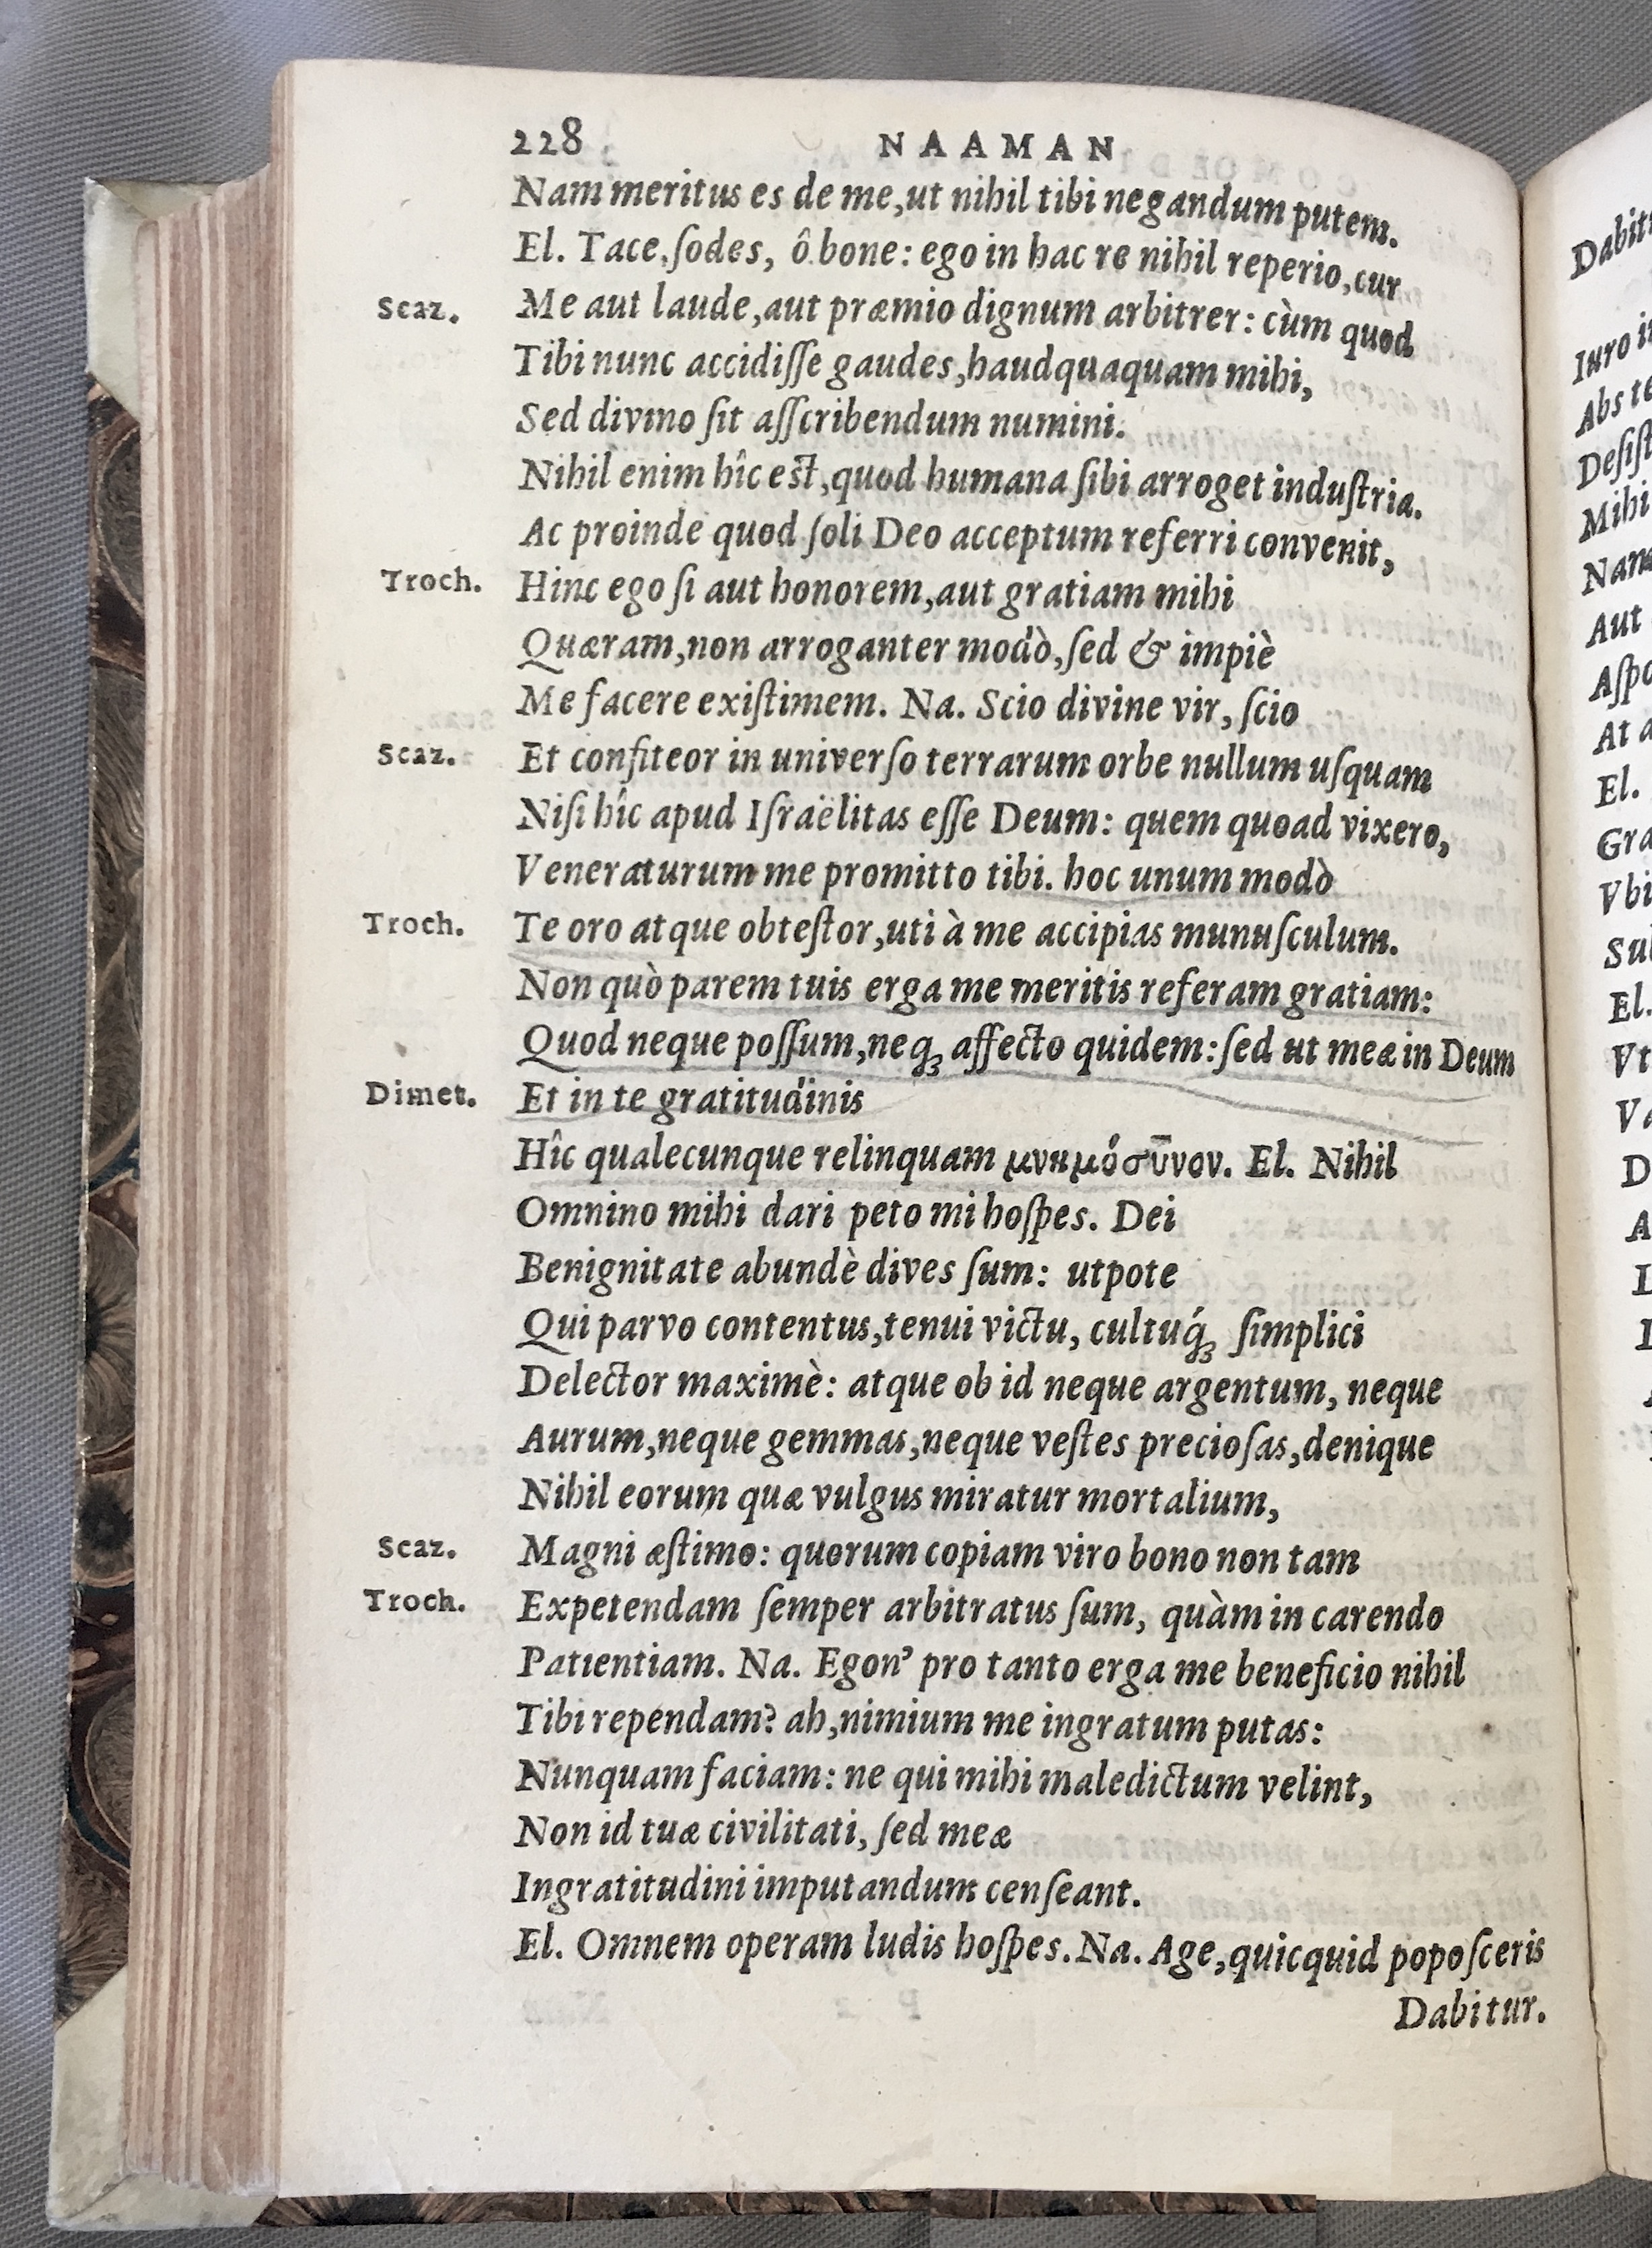 228 NAAMAN
Nam meritus es de me, ut nihil tibi negandum putem.
El. Tace, ſodes, ô bone: ego in hac re nihil reperio, cur
Scaz. Me aut laude, aut præmio dignum arbitrer: cùm quod
Tibi nunc accidiſſe gaudes, haudquaquam mihi,
Sed divino ſit aſſcribendum numini.
Nihil enim hîc est, quod humana ſibi arroget induſtria.
Ac proinde quod ſoli Deo acceptum referri convenit,
Troch. Hinc ego ſi aut honorem, aut gratiam mihi
Quæram, non arroganter modò, ſed & impiè
Me facere exiſtimem. Na. Scio divine vir, ſcio
Scaz. Et confiteor in univerſo terrarum orbe nullum uſquam
Niſi hîc apud Iſraëlitas eſſe Deum: quem quoad vixero,
Veneraturum me promitto tibi. hoc unum modò
Troch. Te oro atque obteſtor, uti à me accipias munuſculum.
Non quò parem tuis erga me meritis referam gratiam:
Quod neque poſſum, neqꝫ affecto quidem: ſed ut meæ in Deum
Dimet. Et in te gratitudinis
Hîc qualecunque relinquam μνημόσυνον. El. Nihil
Omnino mihi dari peto mi hoſpes. Dei
Benignitate abundè dives ſum: utpote
Qui parvo contentus, tenui victu, cultuq́ꝫ ſimplici
Delector maximè: atque ob id neque argentum, neque
Aurum, neque gemmas, neque veſtes precioſas, denique
Nihil eorum quæ vulgus miratur mortalium,
Scaz. Magni æſtimo: quorum copiam viro bono non tam
Troch. Expetendam ſemper arbitratus ſum, quàm in carendo
Patientiam. Na. Egon' pro tanto erga me beneficio nihil
Tibi rependam? ah, nimium me ingratum putas:
Nunquam faciam: ne qui mihi maledictum velint,
Non id tuæ civilitati, ſed meæ
Ingratitudini imputandum cenſeant.
El. Omnem operam ludis hoſpes. Na. Age, quicquid popoſceris
Dabitur.
Dabit
Iuro i
Abs te
Deſiſt
Mihi
Nam
Aut
Aſpo
At a
El.
Gra
Vbi
Su
El.
Vt
Va
D
A